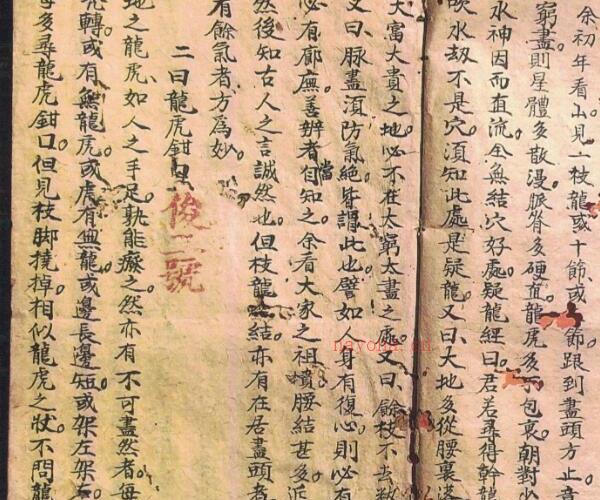 余初年看山見一枝龍或十節或節跟到盡頭方止
窮盡則星體多散漫脈脊多硬直龍虎多不包裹朝對少
水神因而直流全無結穴好處疑龍經曰君若尋得幹龍
吹水刼不是穴須知此處是疑龍又曰大地多從腰裏落
大富大貴之地必不在太窮太盡之處又曰餘枝不去
又曰脉盡須防氣絕皆謂此也譬如人身有復心則必有
必有廊廡善辦者當自知之余看大家之祖墳腰結甚多近
然後知古人之言誠然也但枝龍結亦有在居盡頭者
有餘氣者方為妙
二曰龍虎鉗口
俊二號
地之龍虎如人之手足孰能癈之然亦有不可盡然者每
轉或有無龍虎或虎有無龍或邊長邊短或架左架右
每多尋龍虎鉗口但見枝脚撓掉相似龍虎之狀不問龍
nayona.cn